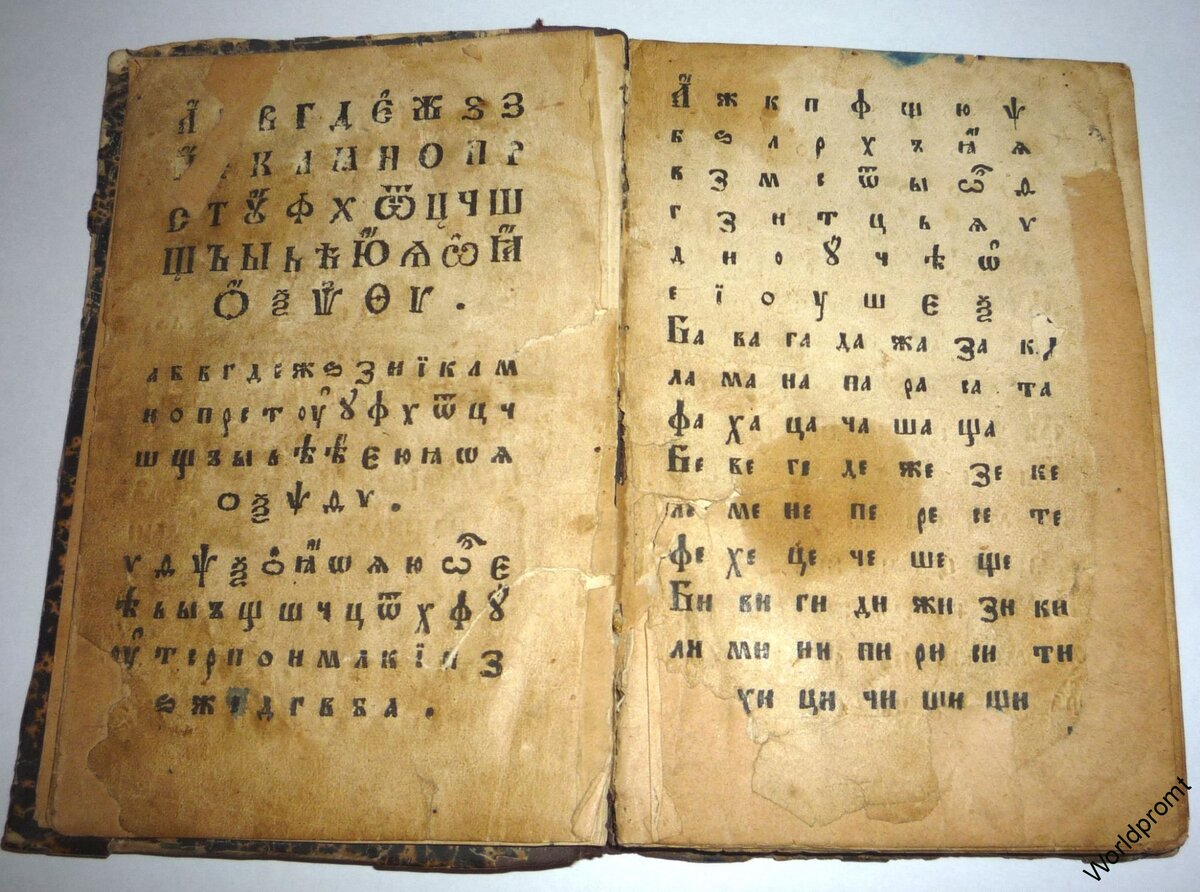 А В Г Д Є Ж Ѕ З
К Л М Н О П Р
С Т Ꙋ Ф Х Ѿ Ц Ч Ш
Щ Ъ Ы Ь Ѣ Ю Ѧ Ѽ Ꙗ
Ѻ Ѯ Ѱ Ѳ Ѵ .
а б в г д е ж ѕ з и ї к л м
н о п р с т оу ꙋ ф х ѿ ц ч
ш щ ъ ы ь ѣ ѣ є ю ꙗ ѡ ѧ
ѻ ѯ ѱ ѳ ѵ .
ѵ ѳ ѱ ѯ ѻ ꙗ ѡ ѧ ю ѽ є
ѣ ь ы ъ щ ш ч ц ѿ х ф ꙋ
оу т с р п о н м л к ї и з
ѕ ж д г в б а .
А ж к п ф ш ю ѱ
б ѕ л р х ъ ꙗ ѧ
в з м с ѿ ы ѽ ѳ
г з н т ц ь ѧ ѵ
д и о ꙋ ч ѣ ѡ
е ї о у ш є ѯ
Ба ва га да жа за ка
ла ма на па ра са та
фа ха ца ча ша ща
Бе ве ге де же зе ке
ле ме не пе ре се те
фе хе це че ше ще
Би ви ги ди жи зи ки
ли ми ни пи ри си ти
хи ци чи ши щи
Worldpromt